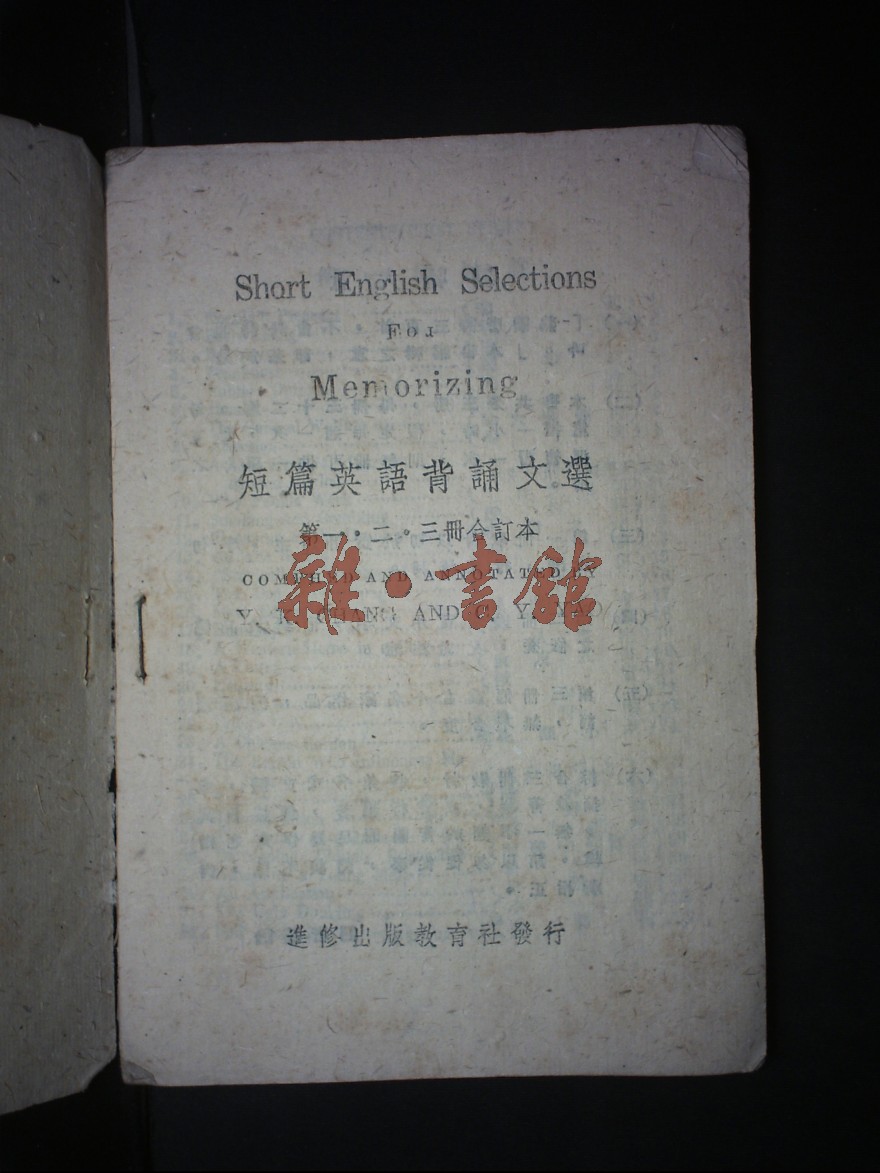 Short English Selections
For
Memorizing
短篇英語背誦文選
第一·二·三冊合訂本
COMPILED AND ANNOTATED BY
雜·書館
AND
進修出版教育社發行